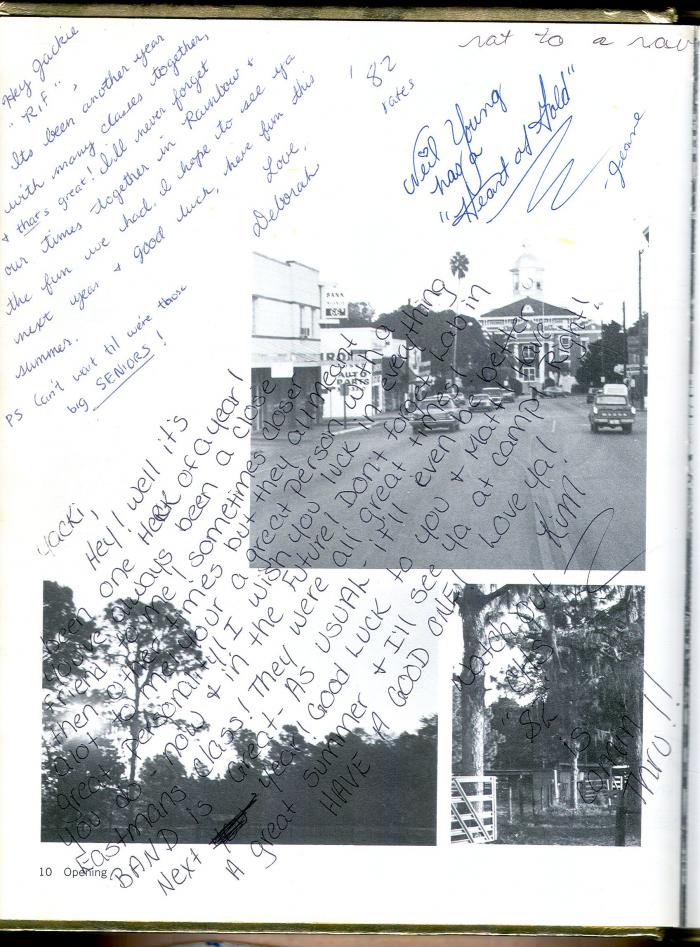 Hey Jackie
"RIF",
Its been another year
with many classes together,
& that's great! I'll never forget
our times together in Rainbow &
the fun we had. I hope to see ya
next year & good luck, have fun this
summer.
Love,
Deborah
PS Can't wait til we're those
big SENIORS!
rat to a
'82
rates
Neil Young
has a
"Heart of Gold"
Jeane
BANK
AUTO
PARTS
Yacki,
Hey! Well it's
been one HecK of a year!
You've always been a close
friend to me! Sometimes closer
then other times but they all meant
alot to me! Your a great person with a
great personality! I wish you luck in everything
you do - now & in the future! Don't forget Lab in
Eastmans class! They were all great times!
BAND is great - AS USUAL - it'll even be better
Next year! Good Luck to you & Matt! I love
A great summer & I'll see ya at camp! Right!
HAVE A GOOD ONE! Love Ya!
Kim
Watch out
is
thru!!
10 Opening